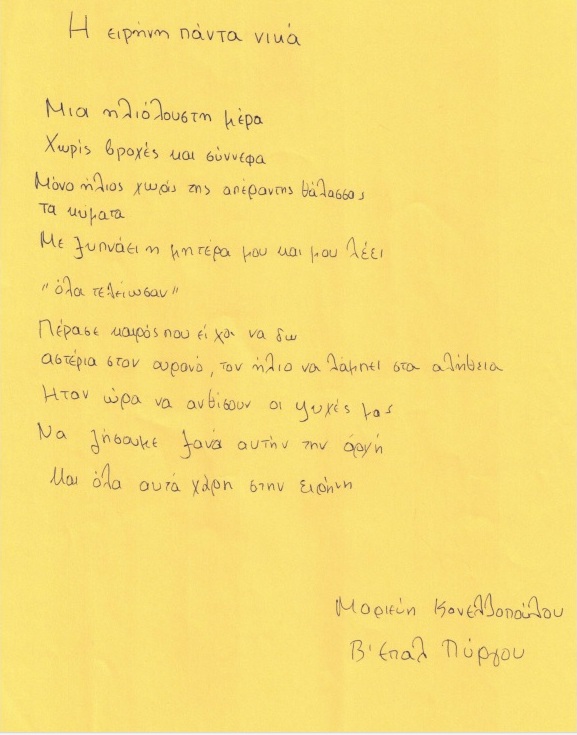 Η ειρήνη πάντα νικά
Μια ηλιόλουστη μέρα
Χωρίς βροχές και σύννεφα
Μόνο ήλιος χωρίς της απέραντης θάλασσας
τα κύματα
Με ξυπνάει η μητέρα μου και μου λέει
"όλα τελείωσαν"
Πέρασε καιρός που είχα να δω
αστέρια στον ουρανό, τον ήλιο να λάμπει στα αλήθεια
Ήταν ώρα να ανθίσουν οι ψυχές μας
Να ζήσουμε ξανά αυτήν την αρχή
Και όλα αυτά χάρη στην ειρήνη
Κανελλοπούλου
Β' Επαλ Πύργου